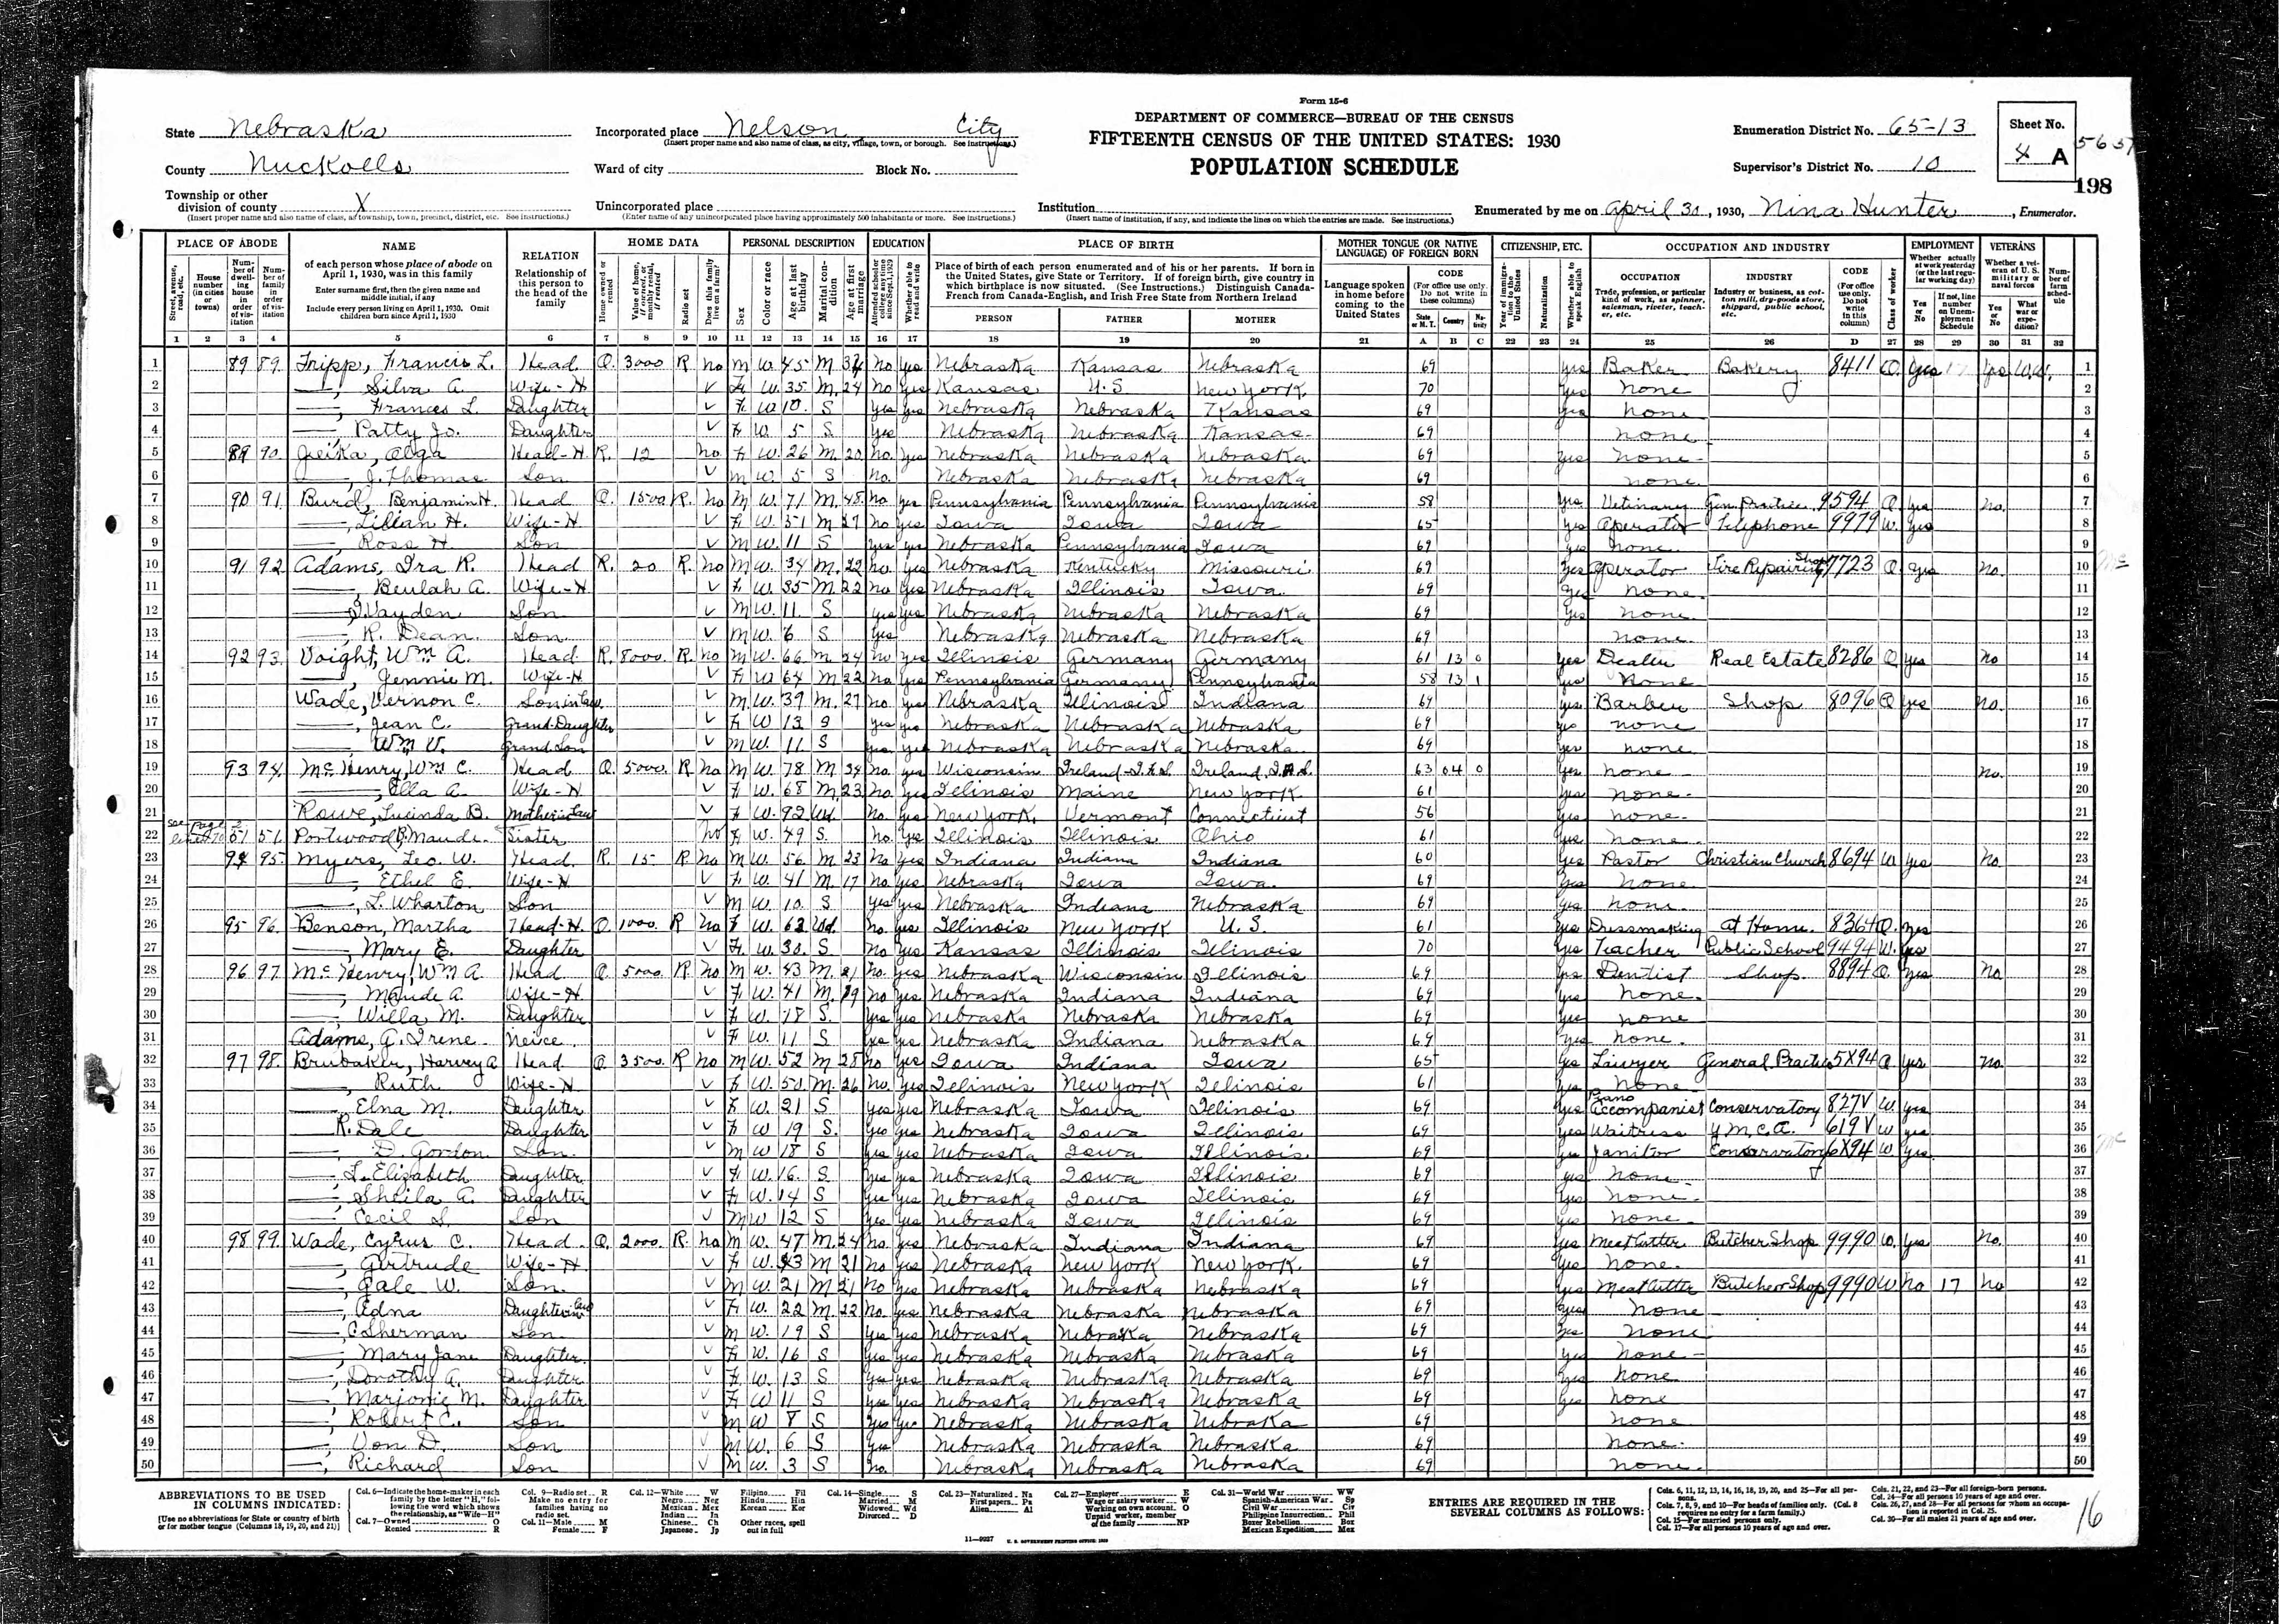 Form 15-6
DEPARTMENT OF COMMERCE—BUREAU OF THE CENSUS
FIFTEENTH CENSUS OF THE UNITED STATES: 1930
POPULATION SCHEDULE
State Nebraska
County Nuckolls
Township or other division of county X
(Insert proper name and also name of class, as township, town, precinct, district, etc. See instructions.)
Incorporated place Nelson City
(Insert proper name and also name of class, as city, village, town, or borough. See instructions.)
Ward of city Block No.
Unincorporated place
(Enter name of any unincorporated place having approximately 500 inhabitants or more. See instructions.)
Institution
(Insert name of institution, if any, and indicate the lines on which the entries are made. See instructions.)
Enumeration District No. 65-13
Supervisor's District No. 10
Sheet No. 4 A
198
Enumerated by me on April 30, 1930, Nina Hunter, Enumerator.
PLACE OF ABODE NAME RELATION HOME DATA PERSONAL DESCRIPTION EDUCATION PLACE OF BIRTH MOTHER TONGUE (OR NATIVE LANGUAGE) OF FOREIGN BORN CITIZENSHIP, ETC. OCCUPATION AND INDUSTRY EMPLOYMENT VETERANS
of each person whose place of abode on April 1, 1930, was in this family
Enter surname first, then the given name and middle initial, if any
Include every person living on April 1, 1930. Omit children born since April 1, 1930
Relationship of this person to the head of the family
Place of birth of each person enumerated and of his or her parents. If born in the United States, give State or Territory. If of foreign birth, give country in which birthplace is now situated. (See Instructions.) Distinguish Canada-French from Canada-English, and Irish Free State from Northern Ireland
PERSON FATHER MOTHER
1 89 89 Tripp, Francis L. Head O. 3000 R no M W. 45 M 34 no yes Nebraska Kansas Nebraska 69 yes Baker Bakery 8411 O. yes yes W.W. 1
2 —, Silva A. Wife-H V F W. 35 M. 24 no yes Kansas U.S. New York 70 yes none 2
3 —, Frances L. Daughter V F W 10. S yes yes Nebraska Nebraska Kansas 69 yes none 3
4 —, Patty Jo. Daughter V F W. 5 S. yes Nebraska Nebraska Kansas 69 none 4
5 89 90 Olga Head-H R. 12 no F W. 26 M. 20 no. yes Nebraska Nebraska Nebraska 69 yes none 5
6 —, J. Thomas Son V M W. 5 S no. Nebraska Nebraska Nebraska 69 none 6
7 90 91 Burd, Benjamin H. Head O. 1500 R. no M W. 71 M. 48 no yes Pennsylvania Pennsylvania Pennsylvania 58 yes Vetinary Gen. Practice 9594 O yes no. 7
8 —, Lilian H. Wife-H V F W. 51 M 27 no yes Iowa Iowa Iowa 65 yes Operator Telephone 9979 W. yes 8
9 —, Ross H. Son V M W. 11 S yes yes Nebraska Pennsylvania Iowa 69 yes none 9
10 91 92 Adams, Ira R. Head R. 20 R. no M W. 34 M. 22 no. yes Nebraska Kentucky Missouri 69 yes Operator Tire Repairing Shop 7723 O. yes no. 10
11 —, Beulah A. Wife-H V F W. 35 M. 22 no yes Nebraska Illinois Iowa 69 yes none. 11
12 —, Hayden Son V M W. 11 S yes yes Nebraska Nebraska Nebraska 69 yes none 12
13 —, R. Dean. Son V M W. 6 S yes Nebraska Nebraska Nebraska 69 none 13
14 92 93 Voight, Wm A. Head R. 8000. R. no M W. 66 M. 24 no yes Illinois Germany Germany 61 13 0 yes Dealer Real Estate 8286 O yes no 14
15 —, Jennie M. Wife-H V F W 64 M 22 no yes Pennsylvania Germany Pennsylvania 58 13 1 yes none 15
16 Wade, Vernon C. Son in law V M W. 39 M. 27 no yes Nebraska Illinois Indiana 69 yes Barber Shop 8096 O yes no. 16
17 —, Jean C. Grand Daughter V F W 13 S yes yes Nebraska Nebraska Nebraska 69 yes none 17
18 —, Wm V. Grand Son V M W. 11 S yes yes Nebraska Nebraska Nebraska 69 yes none 18
19 93 94 McHenry, Wm C. Head O. 5000. R no M W. 78 M 34 no. yes Wisconsin Ireland-I.F.S. Ireland I.F.S. 63 04 0 yes none no. 19
20 —, Ella A. Wife-H V F W. 68 M. 23 no. yes Illinois Maine New York 61 yes none 20
21 Rowe, Lucinda B. Mother in law V F W. 92 Wd. no. yes New York. Vermont Connecticut 56 yes none. 21
22 51 51 Portwood, B. Maude. Sister no F W. 49 S. no. yes Illinois Illinois Ohio 61 yes none 22
23 94 95 Myers, Leo. W. Head R. 15 R no M W. 56 M 23 no yes Indiana Indiana Indiana 60 yes Pastor Christian Church 8694 W yes no. 23
24 —, Ethel E. Wife-H V F W. 41 M. 17 no. yes Nebraska Iowa Iowa. 69 yes none. 24
25 —, L. Wharton Son V M W. 10. S yes yes Nebraska Indiana Nebraska 69 yes none. 25
26 95 96 Benson, Martha Head-H O. 1000. R no F W. 62 Wd. no. yes Illinois New York U.S. 61 yes Dressmaking at Home. 8364 O. yes 26
27 —, Mary E. Daughter V F. W. 30. S no yes Kansas Illinois Illinois 70 yes Teacher Public School 9494 W. yes 27
28 96 97 McHenry, Wm A. Head O. 5000. R no M W. 43 M. 21 no. yes Nebraska Wisconsin Illinois 69 yes Dentist Shop 8894 O. yes no 28
29 —, Maude A. Wife-H V F. W. 41 M. 19 no yes Nebraska Indiana Indiana 69 yes none. 29
30 —, Willa M. Daughter V F W. 18 S. yes yes Nebraska Nebraska Nebraska 69 yes none 30
31 Adams, A. Irene. Neice. V F W. 11 S yes yes Nebraska Indiana Nebraska 69 yes none. 31
32 97 98 Brubaker, Harvey A Head O 3500. R no M W. 52 M 28 no yes Iowa Indiana Iowa 65 yes Lawyer General Practice 5X94 O. yes no. 32
33 —, Ruth Wife-H V F W. 50. M. 26 no. yes Illinois New York Illinois 61 yes none 33
34 —, Elna M. Daughter V F W. 21 S yes yes Nebraska Iowa Illinois 69 yes Piano Accompanist Conservatory 827V W. yes 34
35 —R. Dale Daughter V F W 19 S. yes yes Nebraska Iowa Illinois 69 yes Waitress Y.M.C.A. 619V W yes 35
36 —, D. Gordon Son. V M W 18 S yes yes Nebraska Iowa Illinois 69 yes Janitor Conservatory 6X94 W yes 36
37 —, L. Elizabeth Daughter V F W. 16. S yes yes Nebraska Iowa Illinois 69 yes none 37
38 —, Sheila A. Daughter V F W. 14 S yes yes Nebraska Iowa Illinois 69 yes none 38
39 — Cecil S. Son V M W 12 S yes yes Nebraska Iowa Illinois 69 yes none 39
40 98 99 Wade, Cyrus C. Head. O. 2000. R. no M W. 47 M. 24 no. yes Nebraska Indiana Indiana 69 yes Meat Cutter Butcher Shop 9990 W. yes no. 40
41 —, Gertrude Wife-H. V F W. 43 M 21 no yes Nebraska New York New York. 69 yes none. 41
42 —, Gale W. Son. V M W. 21 M 21 no yes Nebraska Nebraska Nebraska 69 yes Meat Cutter Butcher Shop 9990 W no 17 no 42
43 —, Edna Daughter in law V F W. 22 M. 22 no. yes Nebraska Nebraska Nebraska 69 yes none 43
44 —, C Sherman Son V M W. 19 S yes yes Nebraska Nebraska Nebraska 69 yes none 44
45 —, Mary Jane Daughter. V F W. 16 S yes yes Nebraska Nebraska Nebraska 69 yes none 45
46 —, Dorothy A. Daughter V F. W. 13 S yes yes Nebraska Nebraska Nebraska 69 yes none 46
47 —, Marjorie M. Daughter V F W 11 S yes yes Nebraska Nebraska Nebraska 69 yes none 47
48 —, Robert C. Son V M W 8 S yes yes Nebraska Nebraska Nebraska 69 none 48
49 —, Von D. Son V M W. 6 S yes Nebraska Nebraska Nebraska 69 none. 49
50 —, Richard Son V M W. 3 S no. Nebraska Nebraska Nebraska 69 none. 50
ABBREVIATIONS TO BE USED IN COLUMNS INDICATED:
[Use no abbreviations for State or country of birth or for mother tongue (Columns 18, 19, 20, and 21)]
ENTRIES ARE REQUIRED IN THE SEVERAL COLUMNS AS FOLLOWS:
11—9937 U. S. GOVERNMENT PRINTING OFFICE: 1929
16